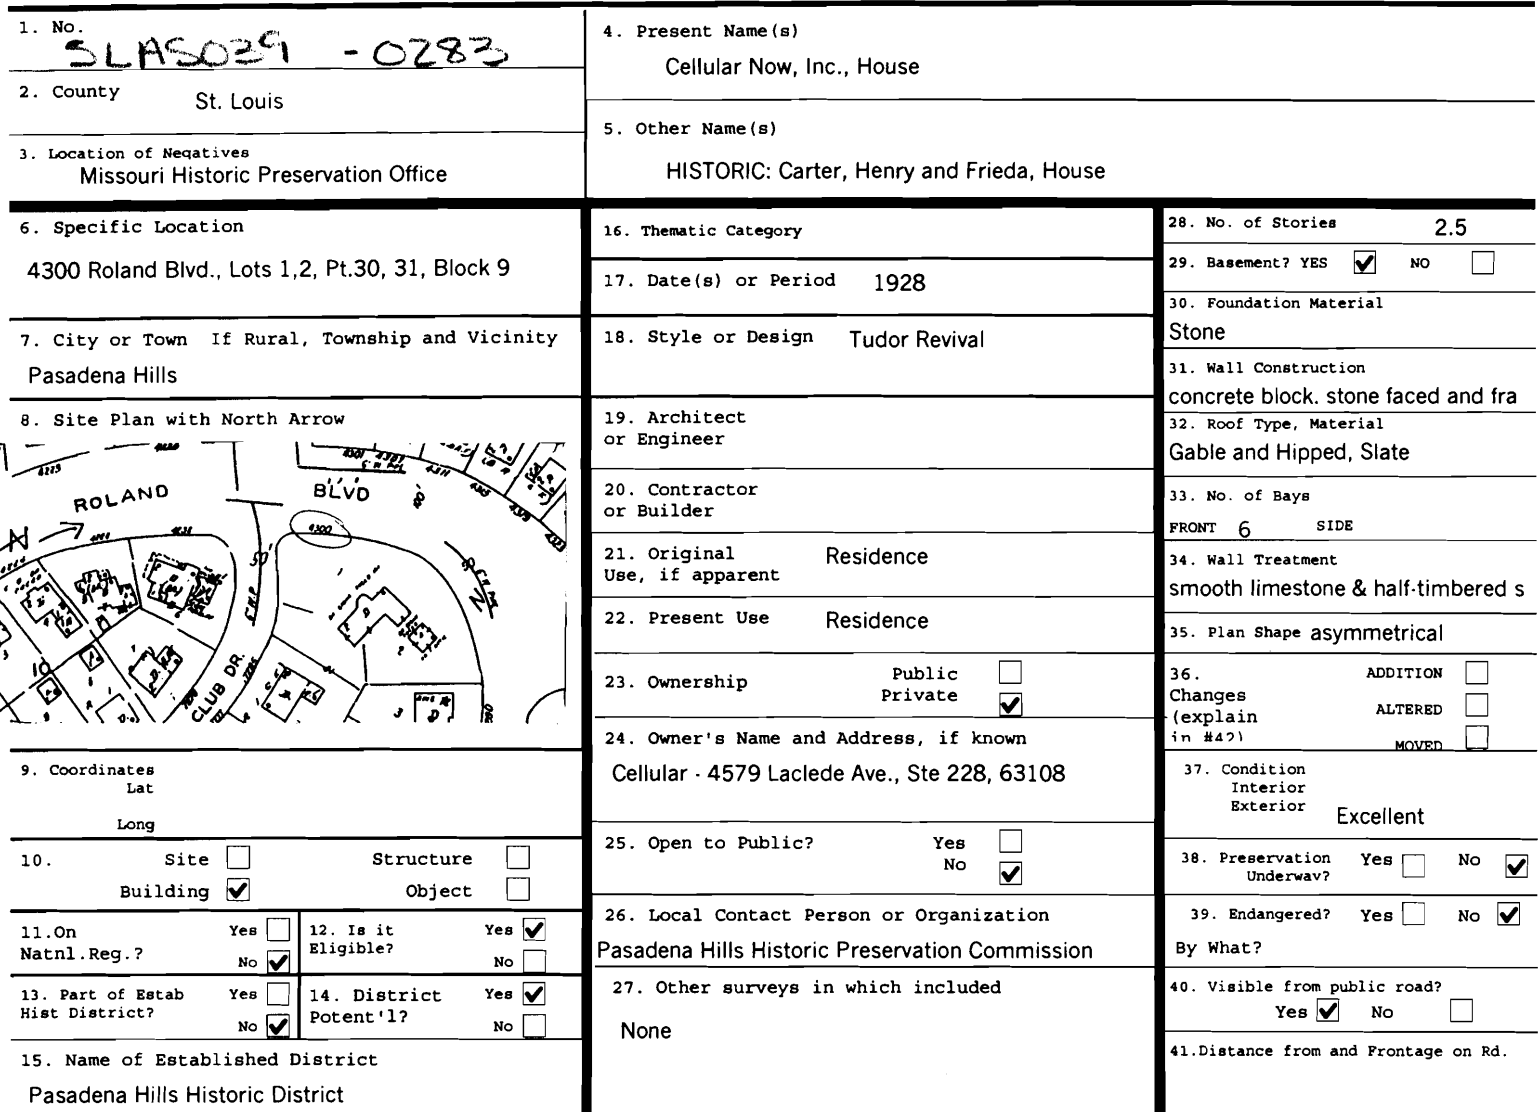 1. No.
SLAS039 -0283
2. County
St. Louis
3. Location of Negatives
Missouri Historic Preservation Office
4. Present Name(s)
Cellular Now, Inc., House
5. Other Name(s)
HISTORIC: Carter, Henry and Frieda, House
6. Specific Location
4300 Roland Blvd., Lots 1,2, Pt.30, 31, Block 9
7. City or Town If Rural, Township and Vicinity
Pasadena Hills
8. Site Plan with North Arrow
ROLAND BLVD
4300
N
50'
CLUB DR.
10
9. Coordinates
Lat
Long
10. Site Structure
Building Object
11.On Natnl.Reg.? Yes
No
12. Is it Eligible? Yes
No
13. Part of Estab Hist District? Yes
No
14. District Potent'l? Yes
No
15. Name of Established District
Pasadena Hills Historic District
16. Thematic Category
17. Date(s) or Period 1928
18. Style or Design Tudor Revival
19. Architect
or Engineer
20. Contractor
or Builder
21. Original Residence
Use, if apparent
22. Present Use Residence
23. Ownership Public
Private
24. Owner's Name and Address, if known
Cellular - 4579 Laclede Ave., Ste 228, 63108
25. Open to Public? Yes
No
26. Local Contact Person or Organization
Pasadena Hills Historic Preservation Commission
27. Other surveys in which included
None
28. No. of Stories 2.5
29. Basement? YES NO
30. Foundation Material
Stone
31. Wall Construction
concrete block. stone faced and fra
32. Roof Type, Material
Gable and Hipped, Slate
33. No. of Bays
FRONT 6 SIDE
34. Wall Treatment
smooth limestone & half-timbered s
35. Plan Shape asymmetrical
36. ADDITION
Changes
(explain ALTERED
in #42) MOVED
37. Condition
Interior
Exterior Excellent
38. Preservation Yes No
Underway?
39. Endangered? Yes No
By What?
40. Visible from public road?
Yes No
41.Distance from and Frontage on Rd.